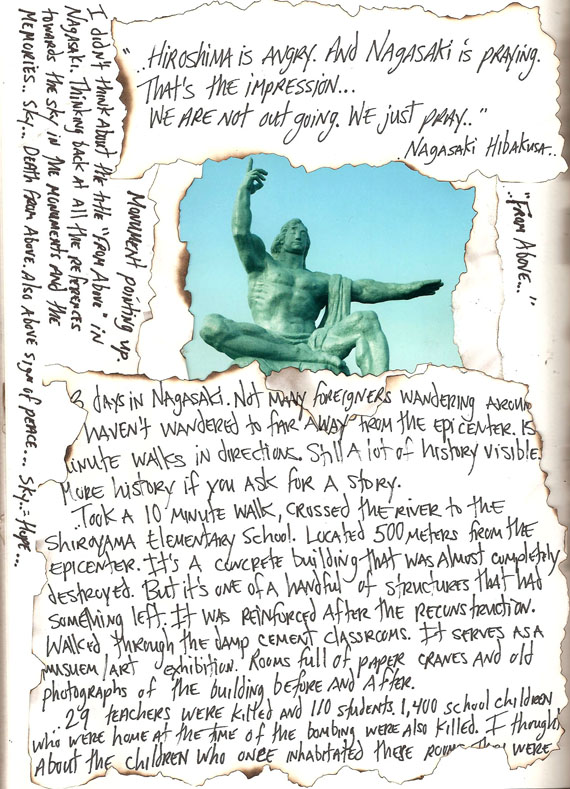 "..Hiroshima is angry. And Nagasaki is praying.
That's the impression...
We are not out going. We just pray.."
Nagasaki Hibakusa..
I didn't think about the title "From Above" in
Nagasaki. Thinking back at all the references
towards the sky in the monuments and the
Memories.. Sky... Death from above. Also above sign of peace... Sky..= Hope...
Monument pointing up
"..From Above..."
3 days in Nagasaki. Not many foreigners wandering around
haven't wandered to far away from the epicenter. 15
minute walks in directions. Still a lot of history visible.
More history if you ask for a story.
..Took a 10 minute walk, crossed the river to the
Shiroyama Elementary School. Located 500 meters from the
epicenter. It's a concrete building that was almost completely
destroyed. But it's one of a handful of structures that had
something left. It was reinforced after the reconstruction.
Walked through the damp cement classrooms. It serves as a
musuem/art exhibition. Rooms full of paper cranes and old
photographs of the building before and after.
..29 teachers were killed and 110 students 1,400 school children
who were home at the time of the bombing were also killed. I thought
about the children who once inhabitated these rooms they were